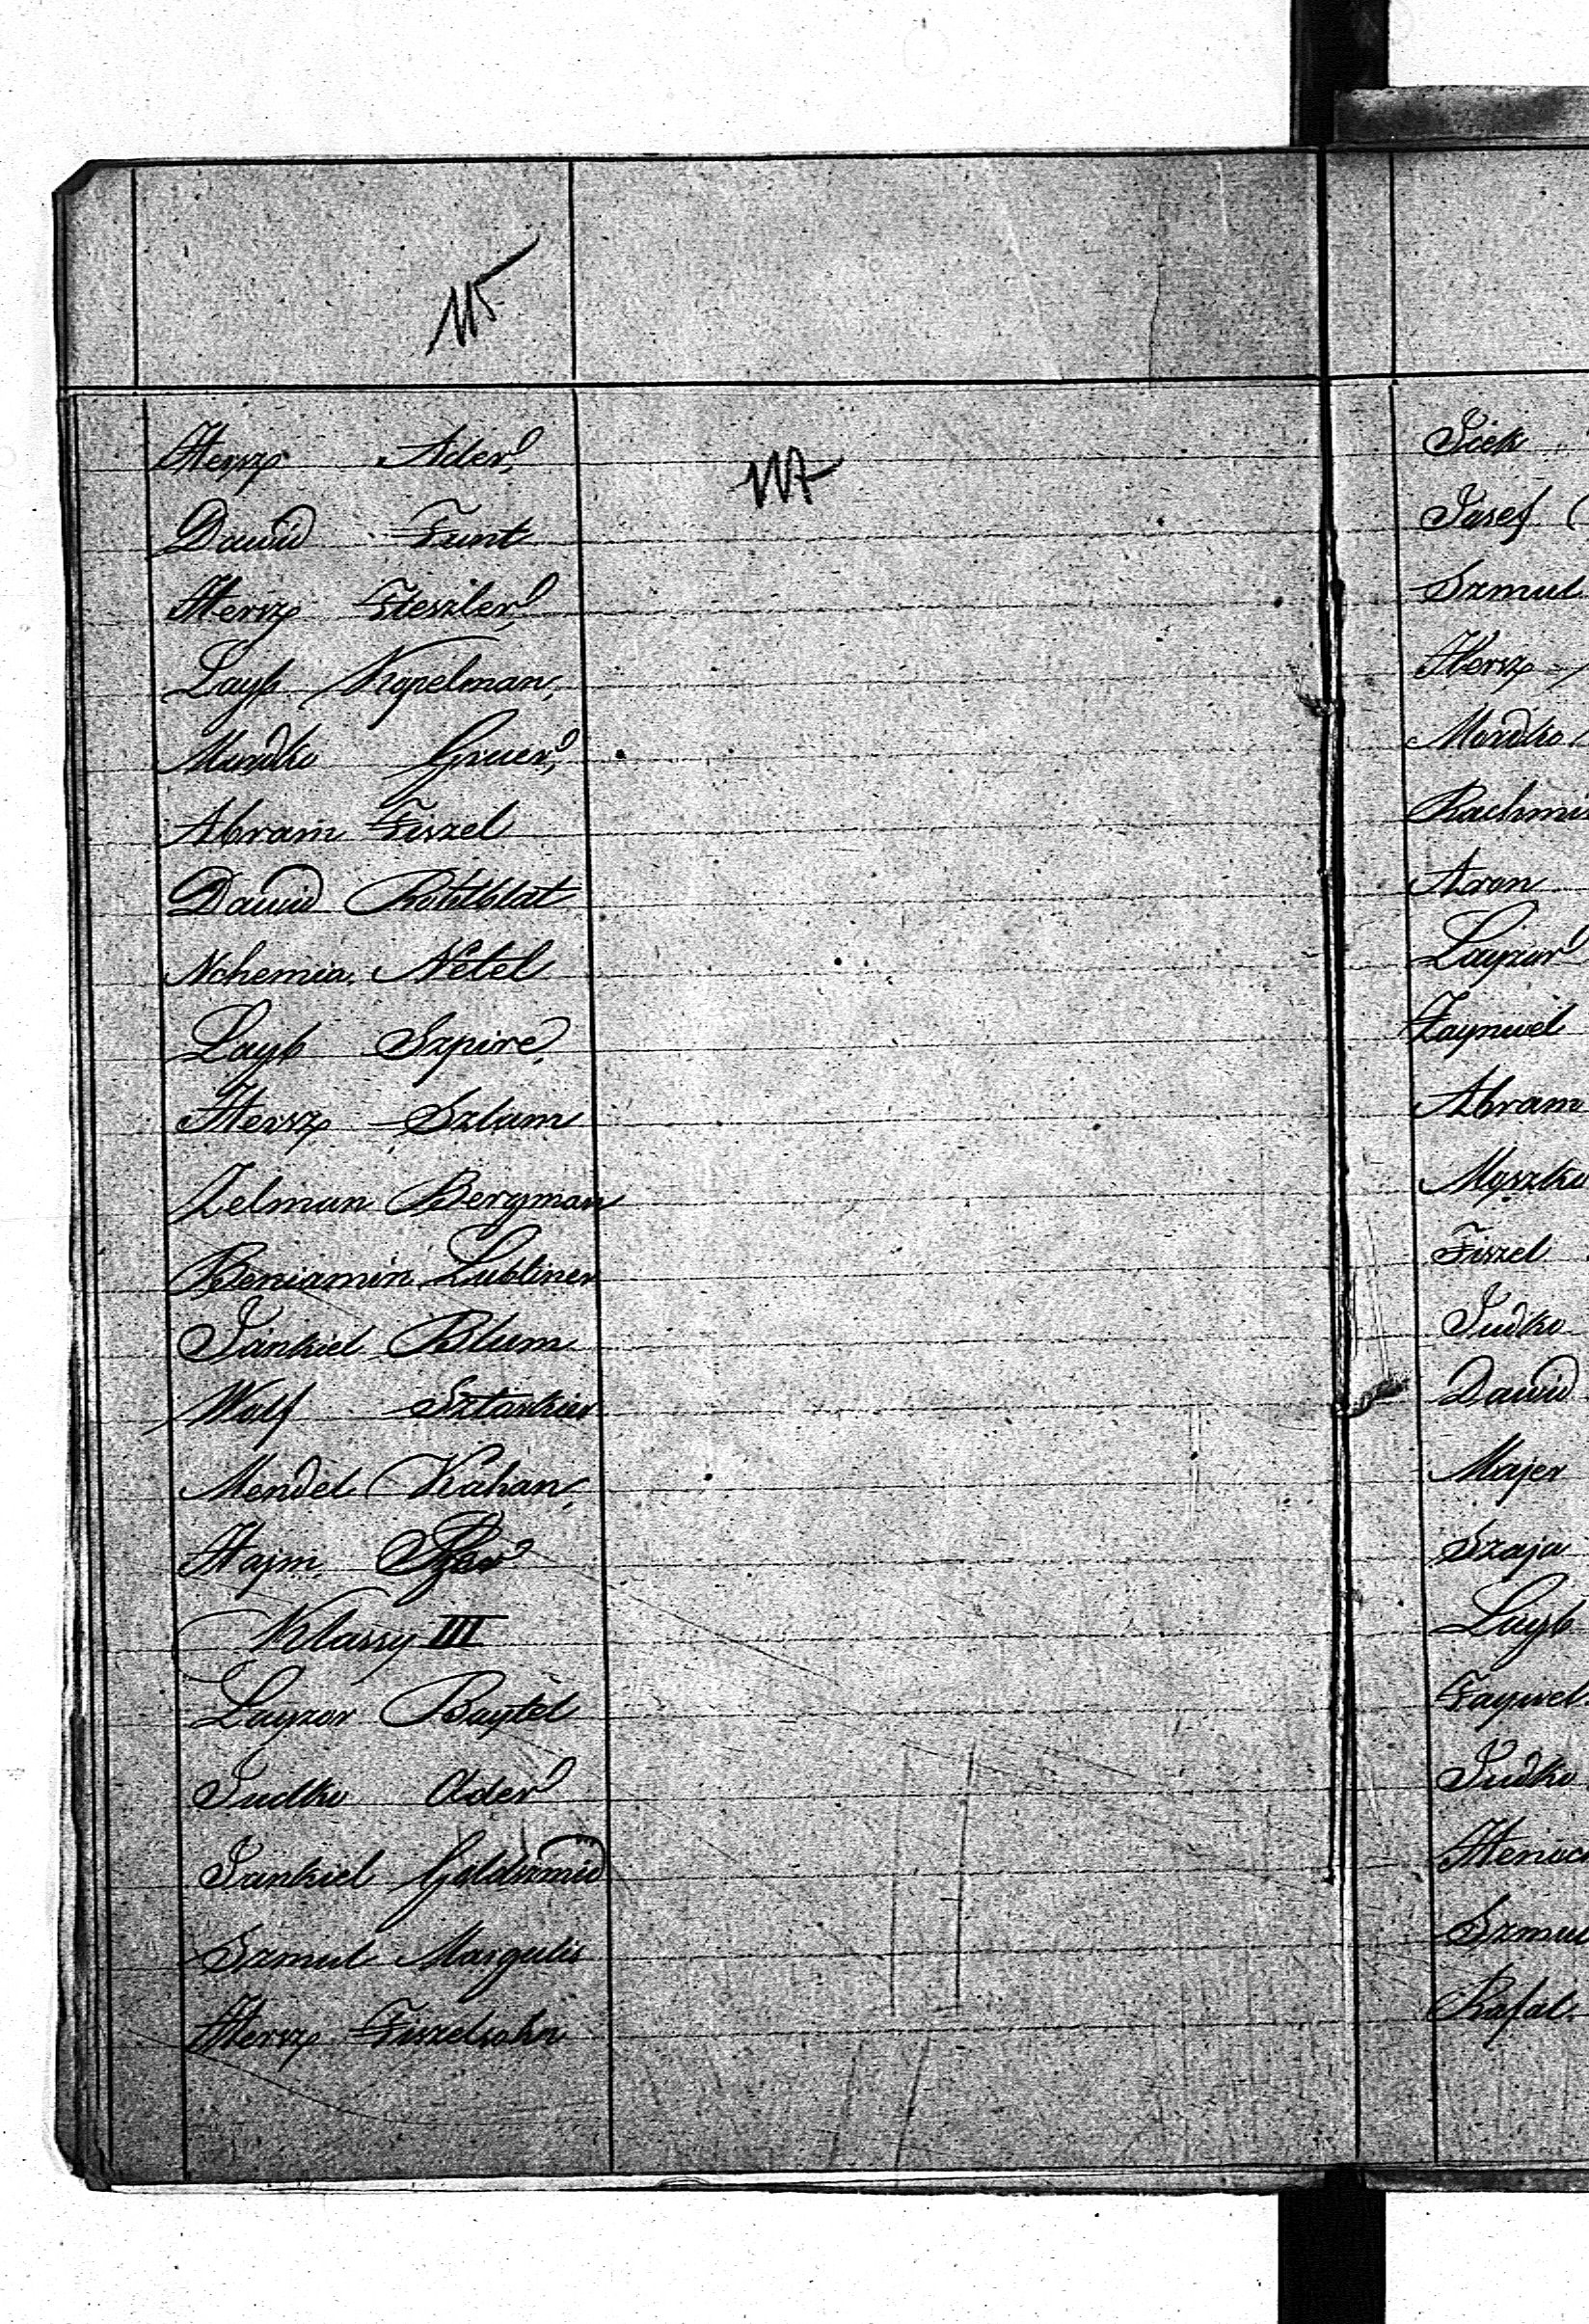 115
Hersz Ader
117
Dawid Funt
Hersz Feszler
Layb Kopelman
Mordko Gruer
Abram Fiszel
Dawid Rohtblat
Nohemia Netel
Layb Szpire
Hersz Szlum
Zelman Bergman
Beniamin Lubliner
Jankiel Blum
Wolf
Mendel Kahan
Hajm
Klassy III
Layzor Baytel
Judko Ader
Jankiel Goldszmid
Szmul Margulis
Hersz Fiszelsohn
Icek
Josef
Szmul
Hersz
Mordko
Rachmi
Aron
Layzor
Zaynwel
Abram
Myszko
Fiszel
Judko
Dawid
Majer
Szaja
Layb
Faywel
Judko
Henoc
Szmul
Rafal